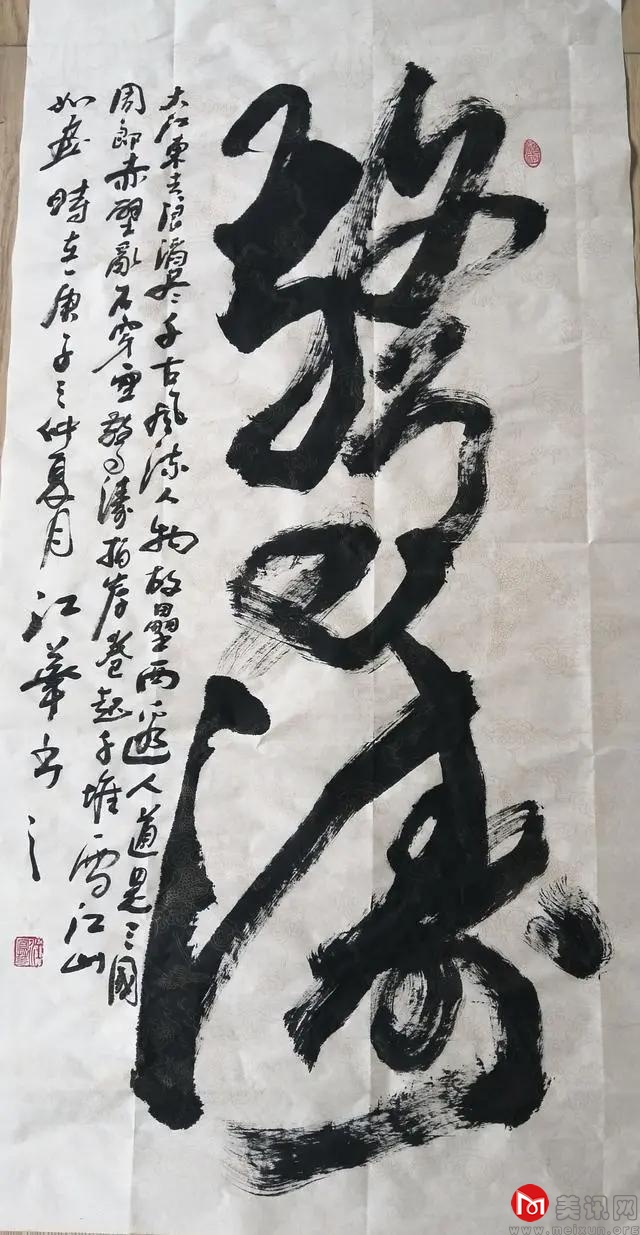 驚濤
大江東去浪淘尽千古風流人物故壘西邊人道是三國
周郎赤壁亂石穿空驚濤拍岸卷起千堆雪江山
如畫 時在庚子之仲夏月 江華書之
美讯网
www.meixun.org